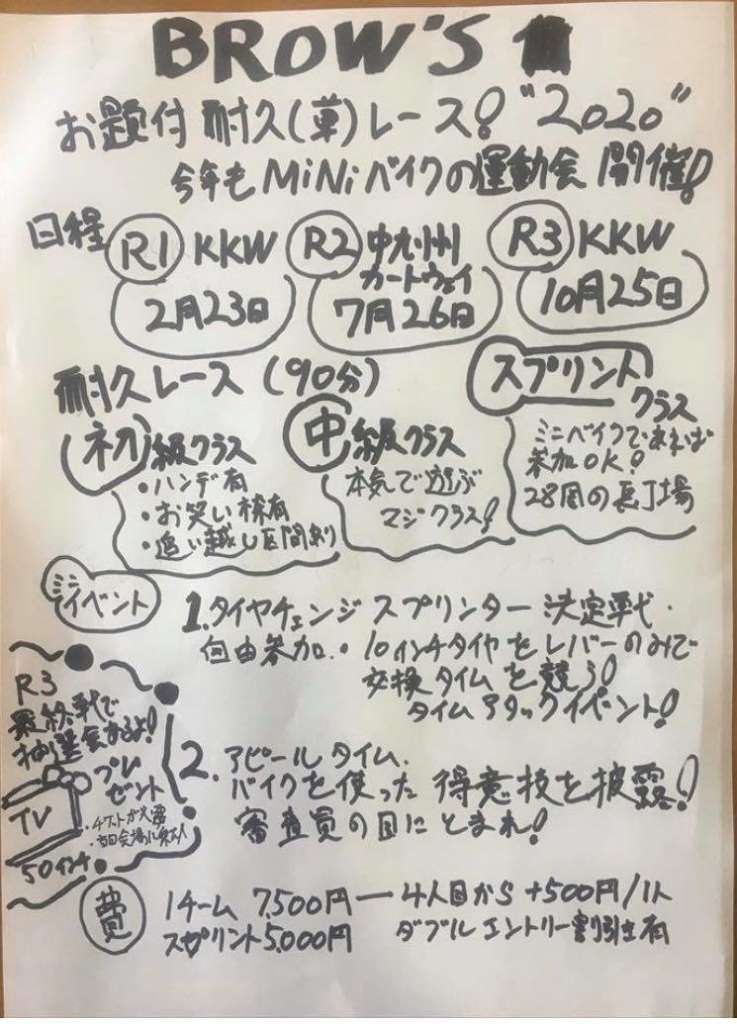 BROW'S
お題付 耐久(草)レース! "2020"
今年もMiNiバイクの運動会 開催!
日程
R1 KKW
2月23日
R2 中九州
カートウェイ
7月26日
R3 KKW
10月25日
耐久レース (90分)
初級クラス
・ハンデ有
・お笑い検有
・追い越し区間制
中級クラス
本気で遊ぶ
マジクラス!
スプリント
クラス
ミニバイクであれば
参加OK!
28周の長丁場
ミニ
イベント
1.タイヤチェンジ スプリンター 決定戦.
自由参加.・10インチタイヤをレバーのみで
交換タイムを競う!
タイムアタックイベント!
R3
最終戦で
抽選会するよ!
プレ
ゼント
TV
50インチ
2.アピールタイム.
バイクを使った 得意技を披露!
審査員の目にとまれ!
費
1チーム 7,500円 ー 4人目から +500円/1人
スプリント5,000円
ダブルエントリー割引き有